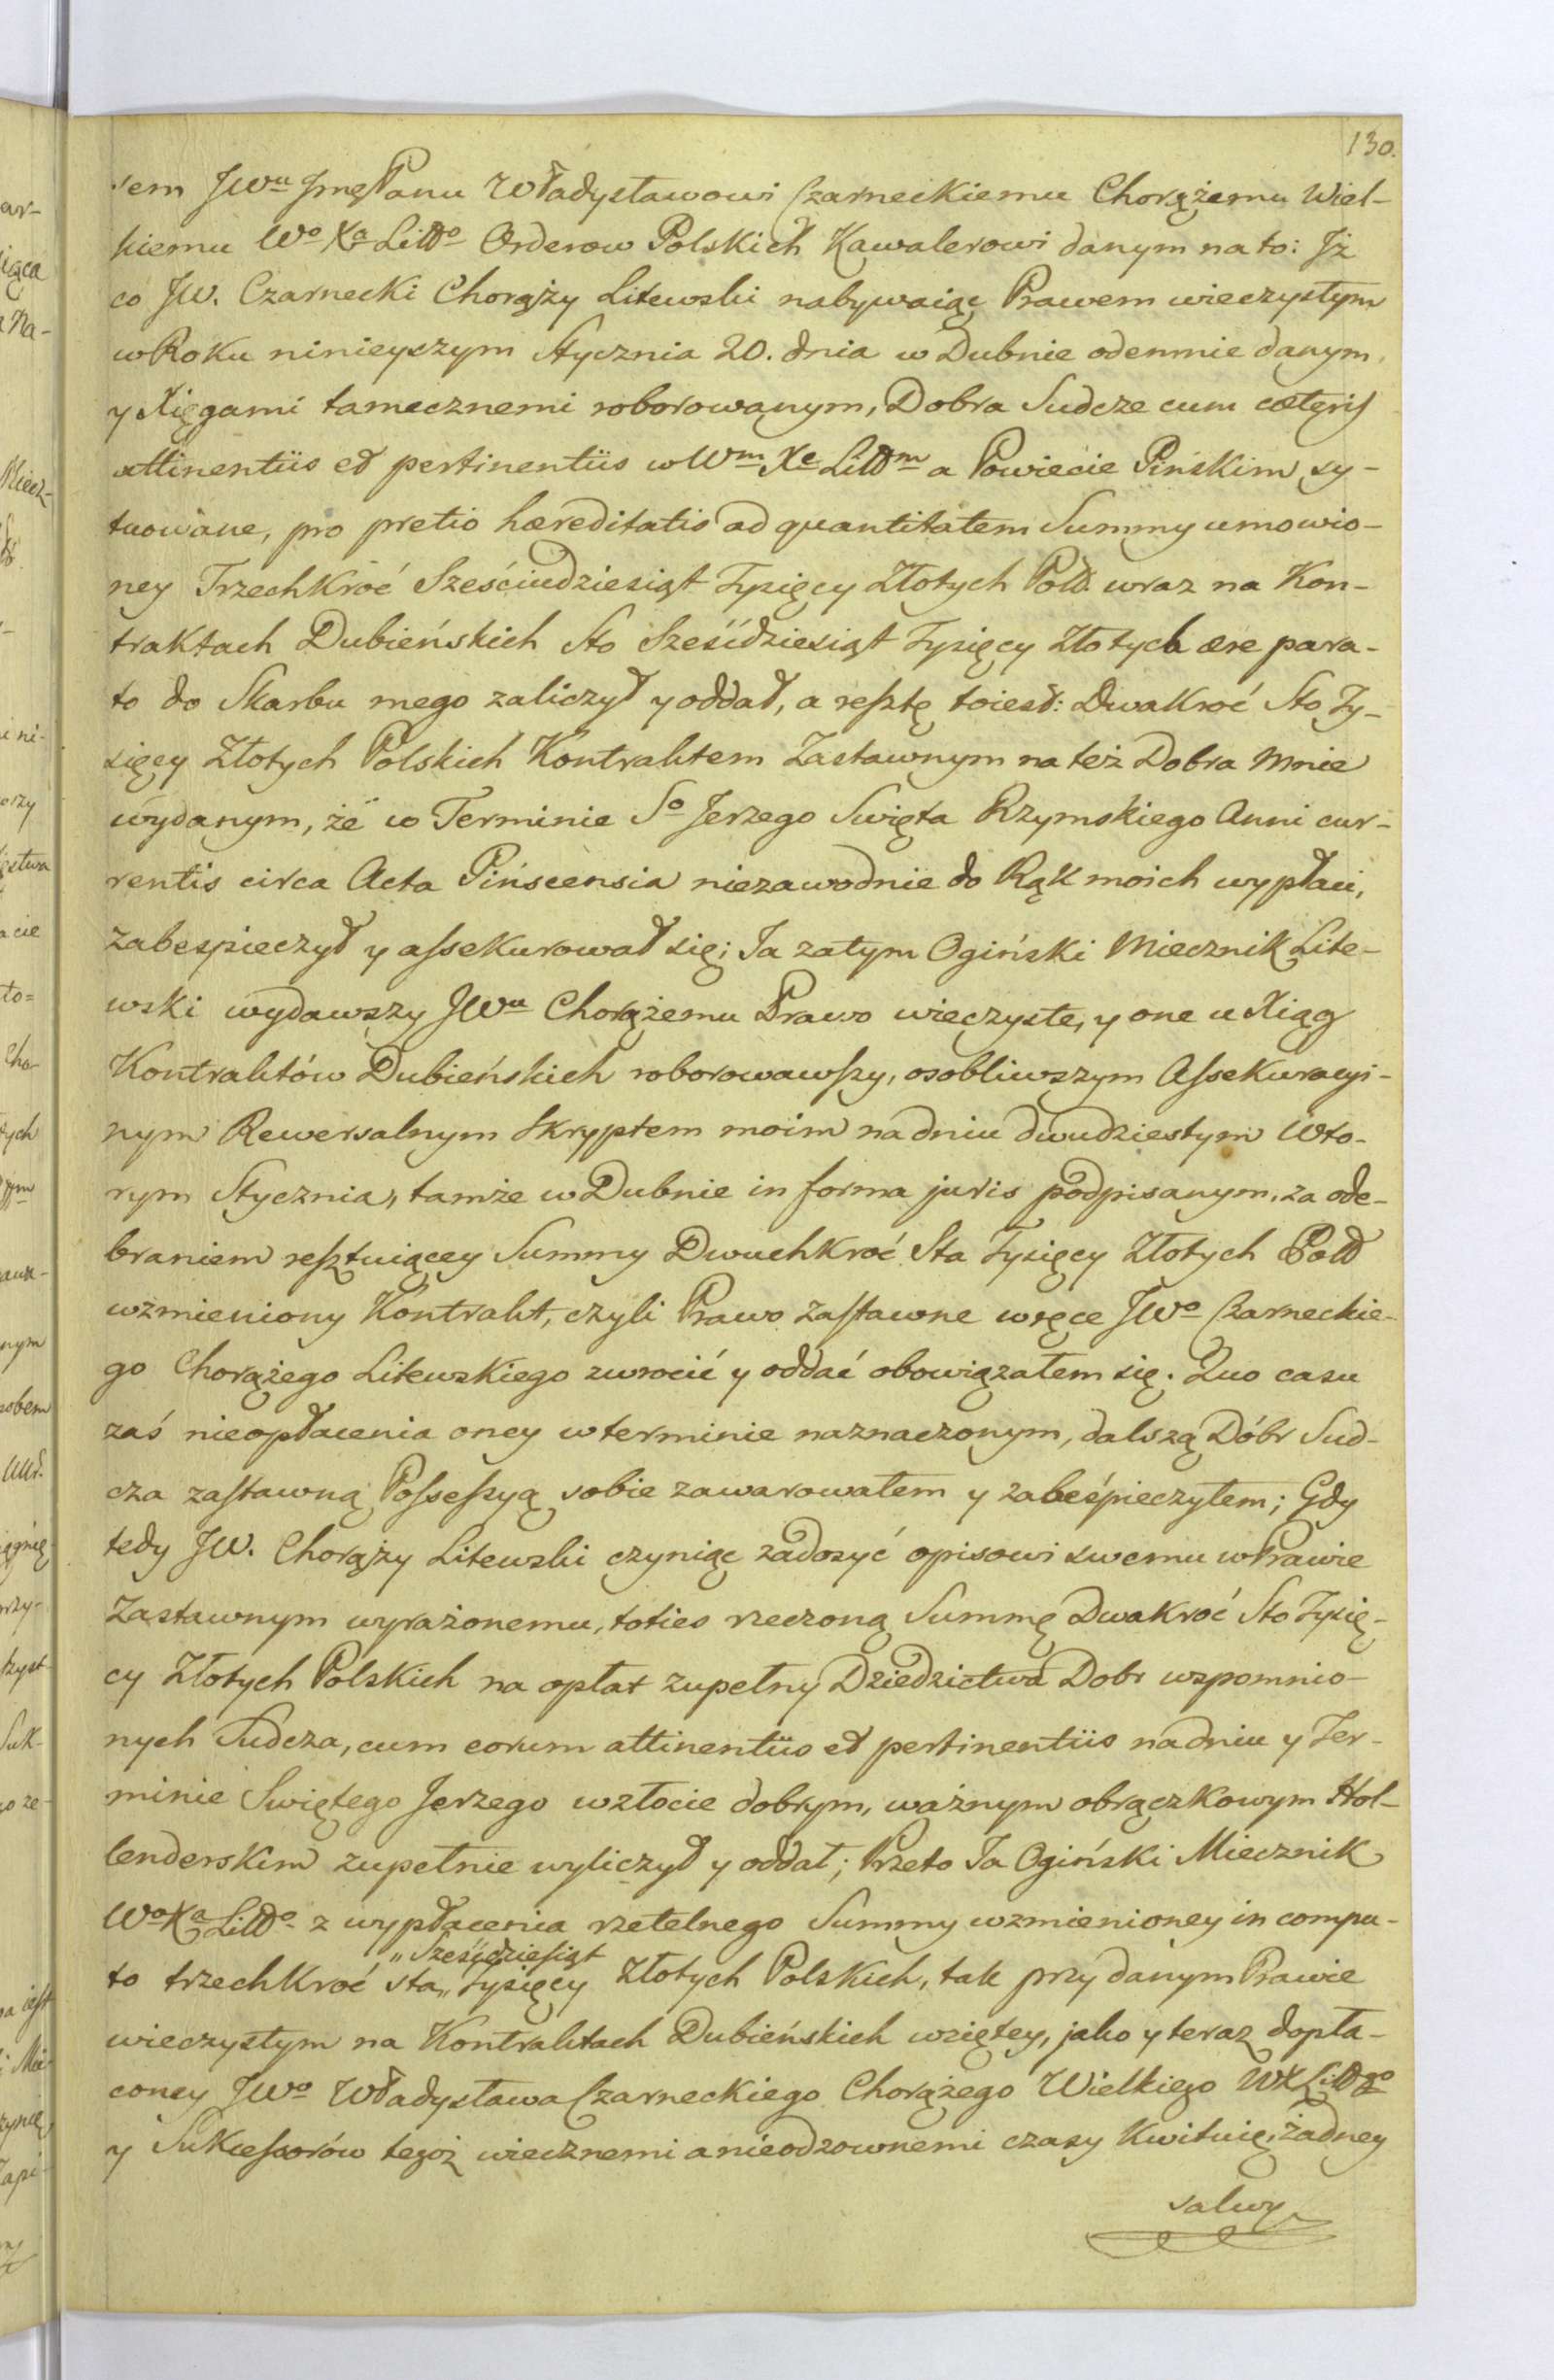 130.
sem JWu JmęPanu Władysławowi Czarneckiemu Chorążemu Wiel-
kiemu Wo Xa Litto Orderow Polskich Kawalerowi danym na to: Jż
co JW. Czarnecki Chorąży Litewski nabywaiąc Prawem wieczystym
w Roku ninieyszym Stycznia 20. dnia w Dubnie odemnie danym,
y Xięgami tamecznemi roborowanym, Dobra Sudcze cum cæteris
attinentiis et pertinentiis w Wm Xe Littm a Powiecie Pińskim sy-
tuowane, pro pretio hæreditatis ad quantitatem Summy umowio-
ney Trzechkroć Sześciudziesiąt Tysięcy Złotych Pols. wraz na Kon-
traktach Dubieńskich Sto Sześćdziesiąt Tysięcy Złotych ære para-
to do Skarbu mego zaliczył y oddał, a resztę toiest: Dwakroć Sto Ty-
sięcy Złotych Polskich Kontraktem Zastawnym na też Dobra mnie
wydanym, że w Terminie So Jerzego Swięta Rzymskiego Anni cur-
rentis circa Acta Pińscensia niezawodnie do Rąk moich wypłaci,
zabespieczył y assekurował się; Ja zatym Ogiński Miecznik Lite-
wski wydawszy JWu Chorążemu Prawo wieczyste, y one u Xiąg
Kontraktów Dubieńskich roborowawszy, osobliwszym Assekuracyi-
nym Rewersalnym skryptem moim na dniu dwudziestym Wto-
rym Stycznia, tamże w Dubnie in forma juris podpisanym, za ode-
braniem resztuiącey Summy Dwuchkroć Sta Tysięcy Złotych Pols
wzmieniony Kontrakt, czyli Prawo zastawne w ręce JWo Czarneckie-
go Chorążego Litewskiego zwrocić y oddać obowiązałem się. Quo casu
zaś nieopłacenia oney w terminie naznaczonym, dalszą Dóbr Sud-
cza zastawną Possessyą sobie zawarowałem y zabeśpieczyłem; Gdy
tedy JW. Chorąży Litewski czyniąc zadosyć opisowi swemu w Prawie
Zastawnym wyrażonemu, toties rzeczoną Summę Dwakroć Sto Tysię-
cy Złotych Polskich na opłat zupełny Dziedzictwa Dobr wspomnio-
nych Sudcza, cum eorum attinentiis et pertinentiis na dniu y Ter-
minie Swiętego Jerzego w złocie dobrym, ważnym obrączkowym Hol-
lenderskim zupełnie wyliczył y oddał; Przeto Ja Ogiński Miecznik
Wo Xa Litto z wypłacenia rzetelnego Summy wzmienioney in compu-
„Sześćdziesiąt
to trzechkroć sta „ Tysięcy Złotych Polskich, tak przy danym Prawie
wieczystym na Kontraktach Dubieńskich wziętey, jako y teraz dopła-
coney JWo Władysława Czarneckiego Chorążego Wielkiego WX Littgo
y Sukcessorów tegoż wiecznemi a nieodzownemi czasy Kwituię, żadney
salwy